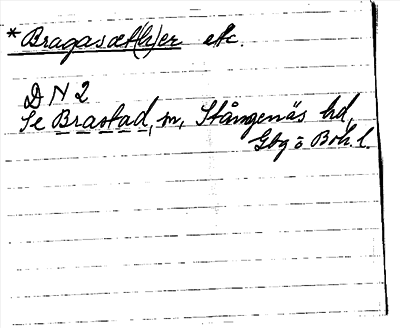 *Bragasæt(h)er etc.
DN 2
Se Brastad, sn, Stångenäs hd,
Gbg o Boh. l.